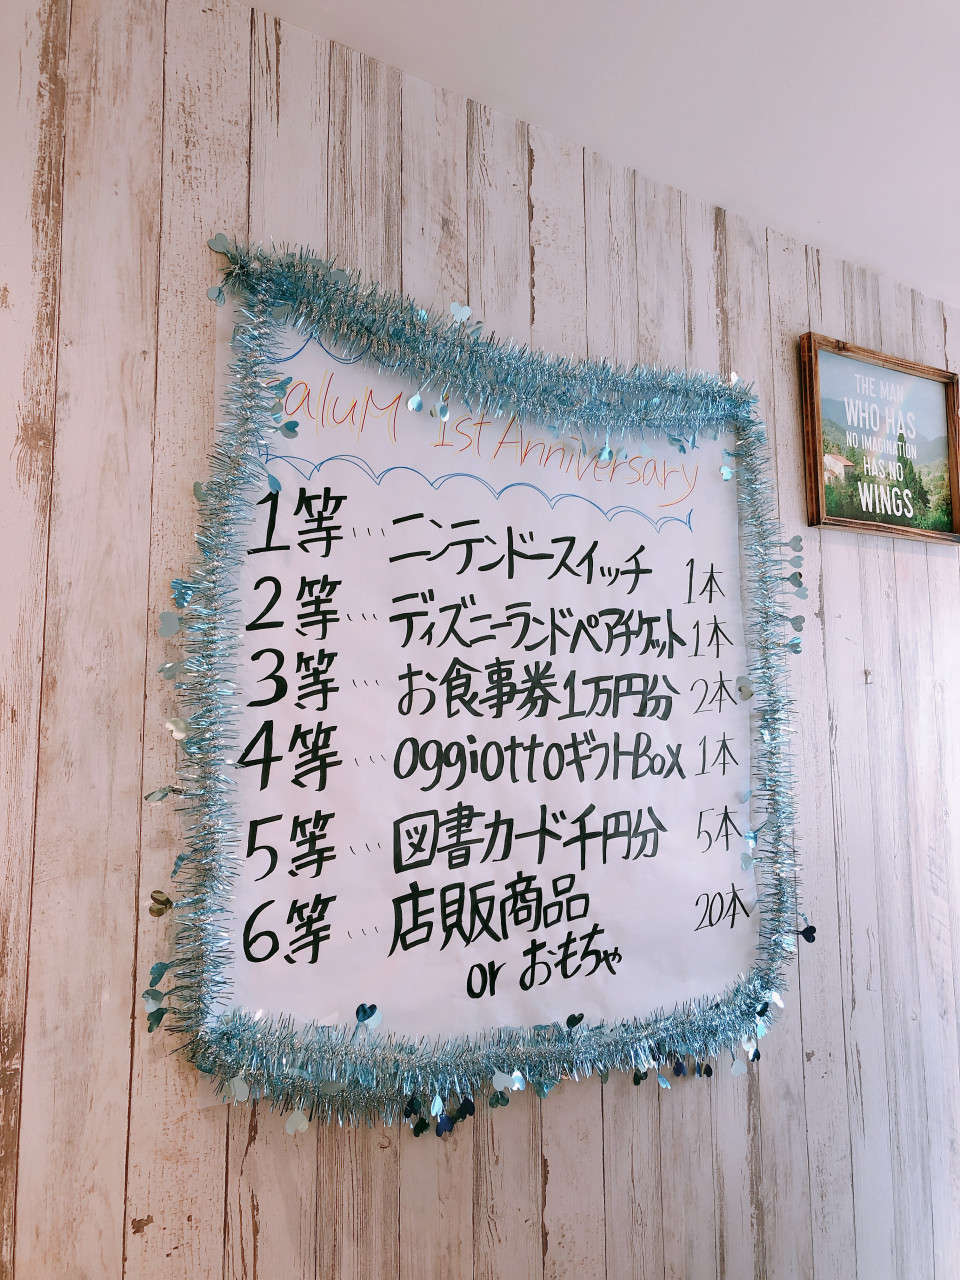 saluM 1st Anniversary
1等 ... ニンテンドースイッチ 1本
2等 ... ディズニーランドペアチケット 1本
3等 ... お食事券1万円分 2本
4等 ... oggiottoギフトBox 1本
5等 ... 図書カード千円分 5本
6等 ... 店販商品 20本
or おもちゃ
THE MAN
WHO HAS
NO IMAGINATION
HAS NO
WINGS